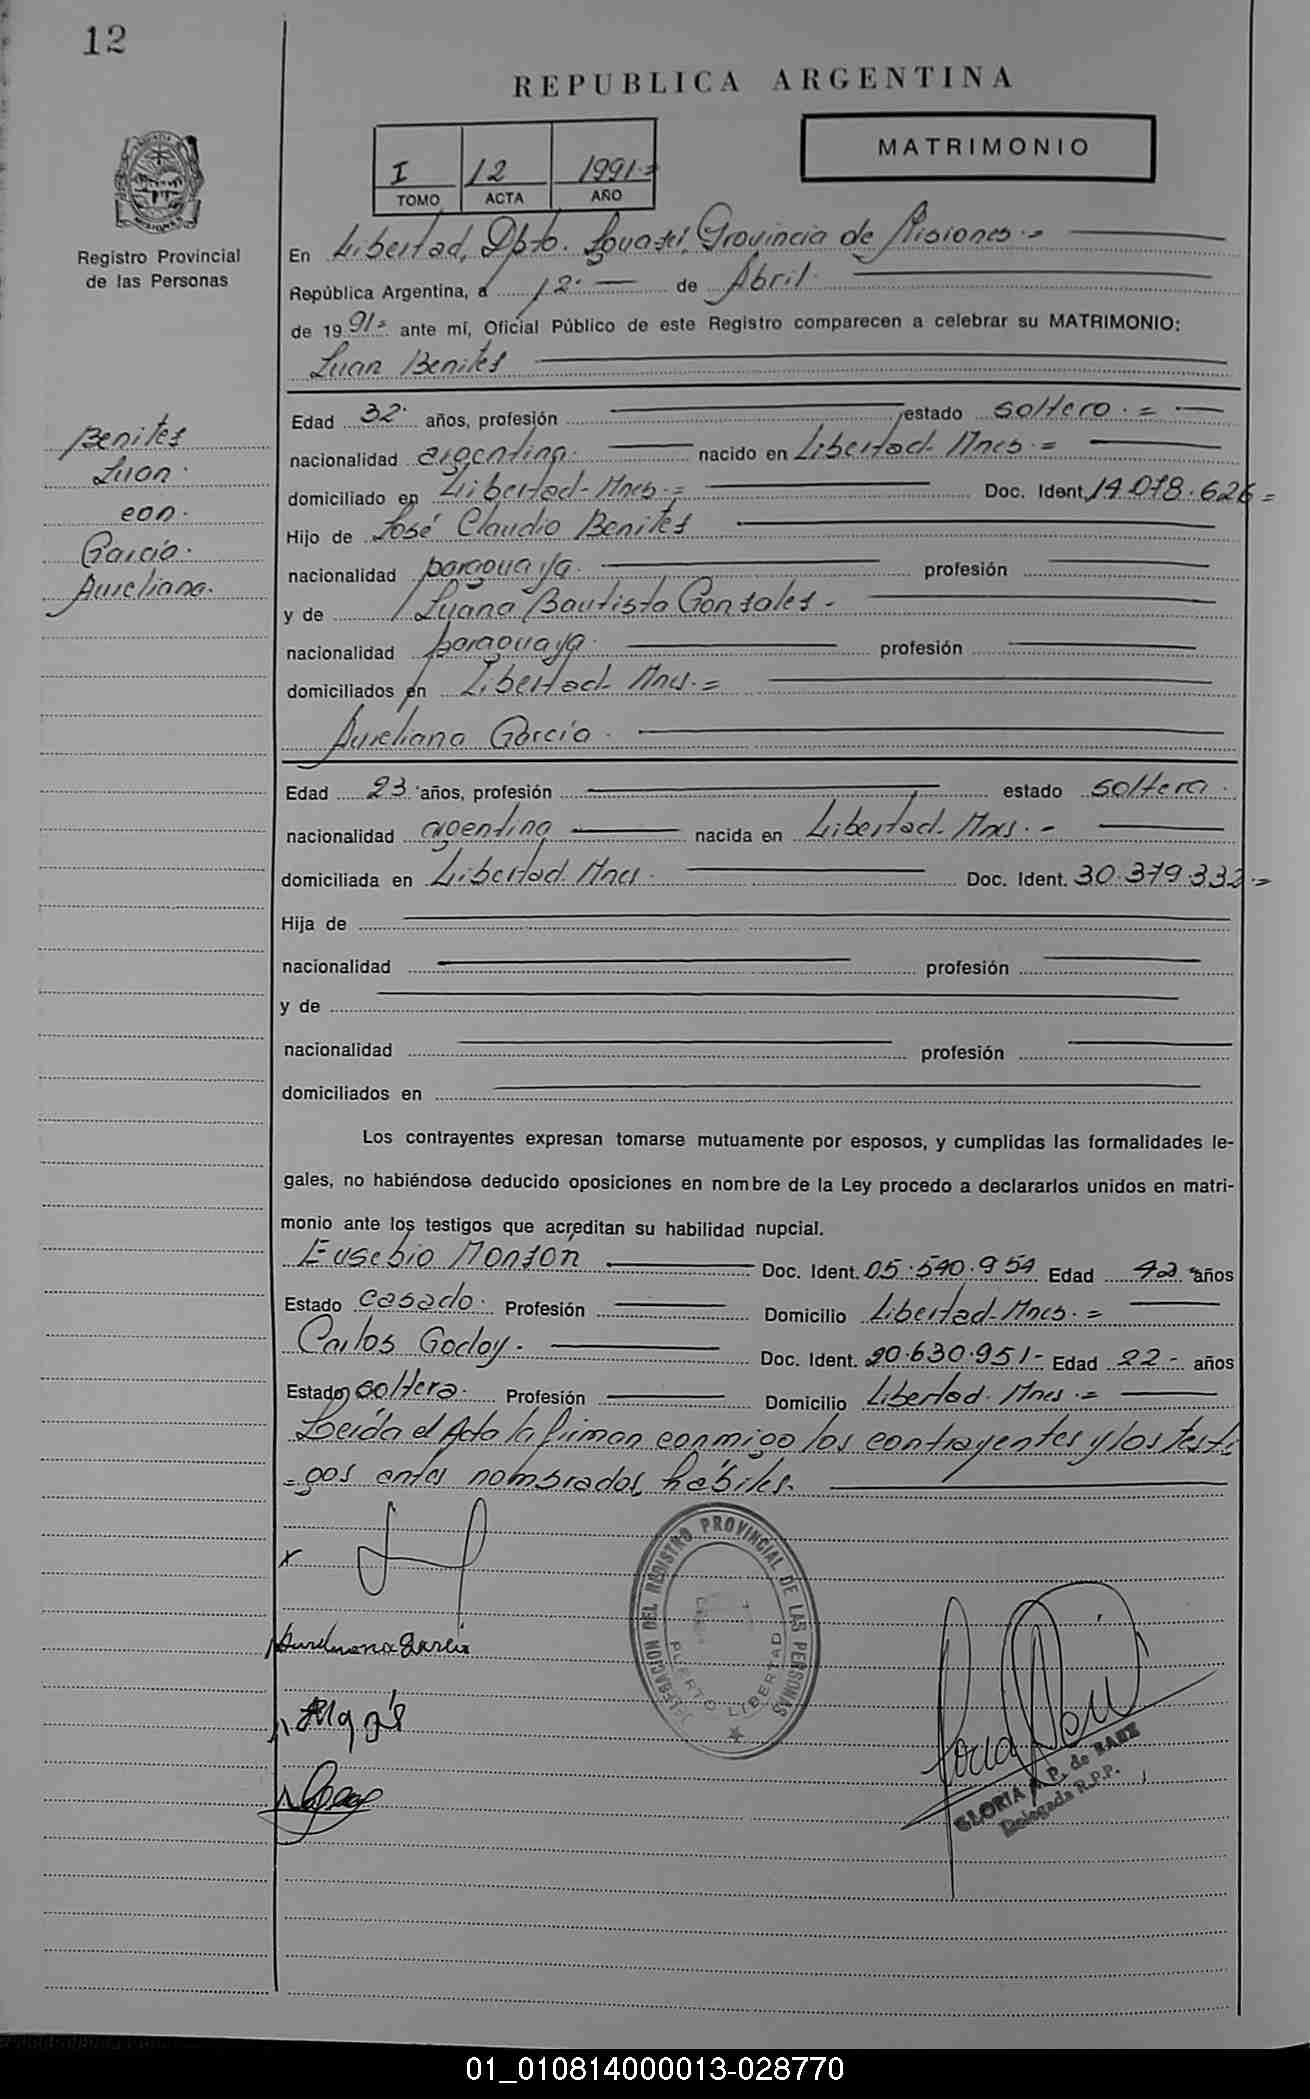 12
REPUBLICA ARGENTINA
MATRIMONIO
I 12 1991.=
TOMO ACTA AÑO
Registro Provincial
de las Personas
En Libertad, Dpto. Iguazú, Provincia de Misiones.=
República Argentina, a 12. de Abril.
de 1991= ante mí, Oficial Público de este Registro comparecen a celebrar su MATRIMONIO:
Juan Benites
Benites
Juan.
con.
García.
Aureliana.
Edad 32. años, profesión estado soltero.=
nacionalidad argentina. nacido en Libertad-Mnes=
domiciliado en Libertad-Mnes.= Doc. Ident. 14.078.626=
Hijo de José Claudio Benites
nacionalidad paraguaya. profesión
y de Juana Bautista Gonzales-
nacionalidad paraguaya. profesión
domiciliados en Libertad-Mnes.=
Aureliana García.
Edad 23. años, profesión estado soltera.
nacionalidad agentina nacida en Libertad-Mnes.-
domiciliada en Libertad Mnes. Doc. Ident. 30.379.332.=
Hija de
nacionalidad profesión
y de
nacionalidad profesión
domiciliados en
Los contrayentes expresan tomarse mutuamente por esposos, y cumplidas las formalidades le-
gales, no habiéndose deducido oposiciones en nombre de la Ley procedo a declararlos unidos en matri-
monio ante los testigos que acreditan su habilidad nupcial.
Eusebio Monzón Doc. Ident. 05.540.954 Edad 42 años
Estado casado. Profesión Domicilio Libertad-Mnes.=
Carlos Godoy. Doc. Ident. 20.630.951- Edad 22- años
Estado soltero. Profesión Domicilio Libertad-Mnes.=
Leída el Acta la firman conmigo los contrayentes y los testi
=gos antes nombrados, hábiles.
DELEGACION DEL REGISTRO PROVINCIAL DE LAS PERSONAS
PUERTO LIBERTAD
Aureliana Garcia
GLORIA P. de BAEZ
Delegada R.P.P.
01_010814000013-028770